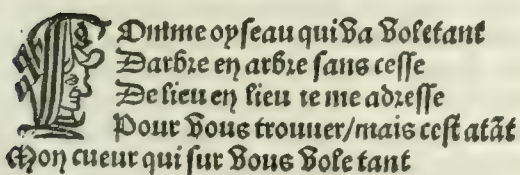 COmme oyseau qui va voletant
Darbre en arbre sans cesse
De lieu en lieu ie me adresse
Pour vous trouuer/mais cest atāt
Mon cueur qui sur vous vole tant